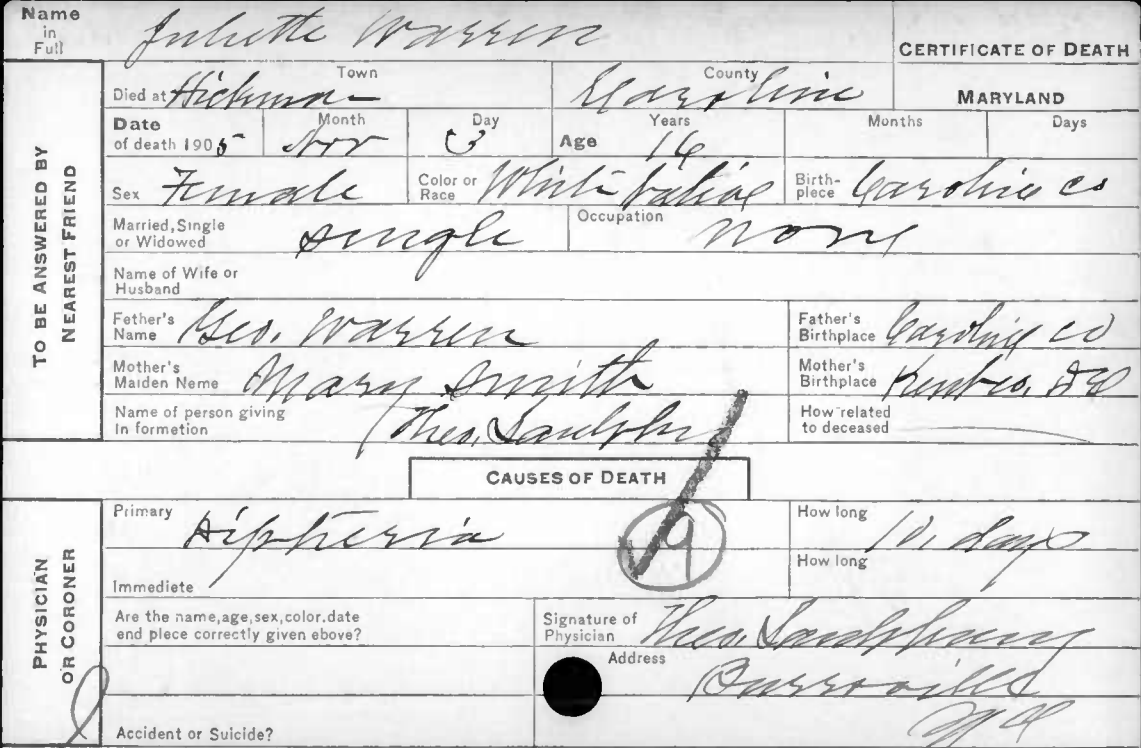 Name in Full Juliette Warren
CERTIFICATE OF DEATH
TO BE ANSWERED BY NEAREST FRIEND
Died at Hickman Town Caroline County MARYLAND
Date of death 1905 Month Nov Day 3 Age Years 16 Months Days
Sex Female Color or Race White Native Birth-plece Caroline Co
Married, Single or Widowed single Occupation None
Name of Wife or Husband
Father's Name Geo. Warren Father's Birthplace Caroline Co
Mother's Maiden Neme Mary Smith Mother's Birthplace Kent Co. Del
Name of person giving In formetion Theo. How related to deceased
CAUSES OF DEATH
PHYSICIAN OR CORONER
Primary Diptheria 9 How long 10 days
Immediete How long
Are the name,age,sex,color.date end plece correctly given ebove? Signature of Physician Theo.
Address Burrsville
Md
Accident or Suicide?